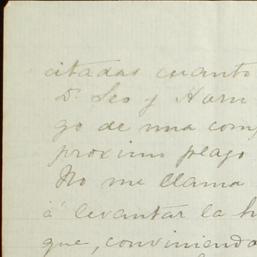 citadas cuanto
D. Leo y Ham
go de una com
proximo plazo
No me llama
á levantar la h
que, conviniendo